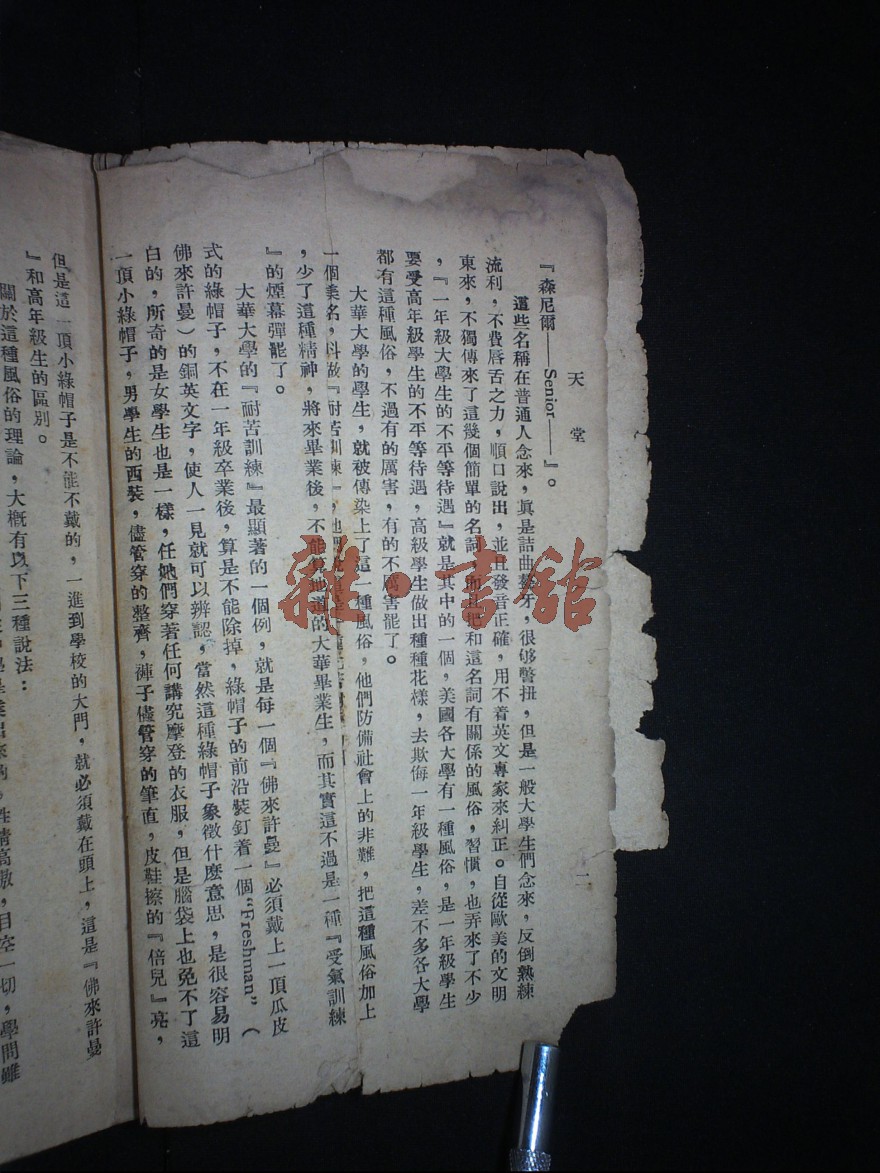 天堂
二
『森尼爾——Senior——』。
這些名稱在普通人念來，眞是詰曲聱牙，很够彆扭，但是一般大學生們念來，反倒熟練
流利，不費唇舌之力，順口說出，並且發音正確，用不着英文專家來糾正。自從歐美的文明
東來，不獨傳來了這幾個簡單的名詞，而且把和這名詞有關係的風俗，習慣，也弄來了不少
，『一年級大學生的不平等待遇』就是其中的一個，美國各大學有一種風俗，是一年級學生
要受高年級學生的不平等待遇，高級學生做出種種花樣，去欺侮一年級學生，差不多各大學
都有這種風俗，不過有的厲害，有的不厲害罷了。
大華大學的學生，就被傳染上了這一種風俗，他們防備社會上的非難，把這種風俗加上
一個美名，叫做『耐苦訓練』，他們說
，少了這種精神，將來畢業後，不能算地道的大華畢業生，而其實這不過是一種『受氣訓練
』的煙幕彈罷了。
大華大學的『耐苦訓練』最顯著的一個例，就是每一個『佛來許曼』必須戴上一頂瓜皮
式的綠帽子，不在一年級卒業後，算是不能除掉，綠帽子的前沿裝釘着一個“Freshman”（
佛來許曼）的銅英文字，使人一見就可以辨認，當然這種綠帽子象徵什麽意思，是很容易明
白的，所奇的是女學生也是一樣，任她們穿著任何講究摩登的衣服，但是腦袋上也免不了這
一頂小綠帽子，男學生的西裝，儘管穿的整齊，褲子儘管穿的筆直，皮鞋擦的『倍兒』亮，
但是這一頂小綠帽子是不能不戴的，一進到學校的大門，就必須戴在頭上，這是『佛來許曼
』和高年級生的區別。
關於這種風俗的理論，大概有以下三種說法：
性情高傲，目空一切，學問雖
雜·書館